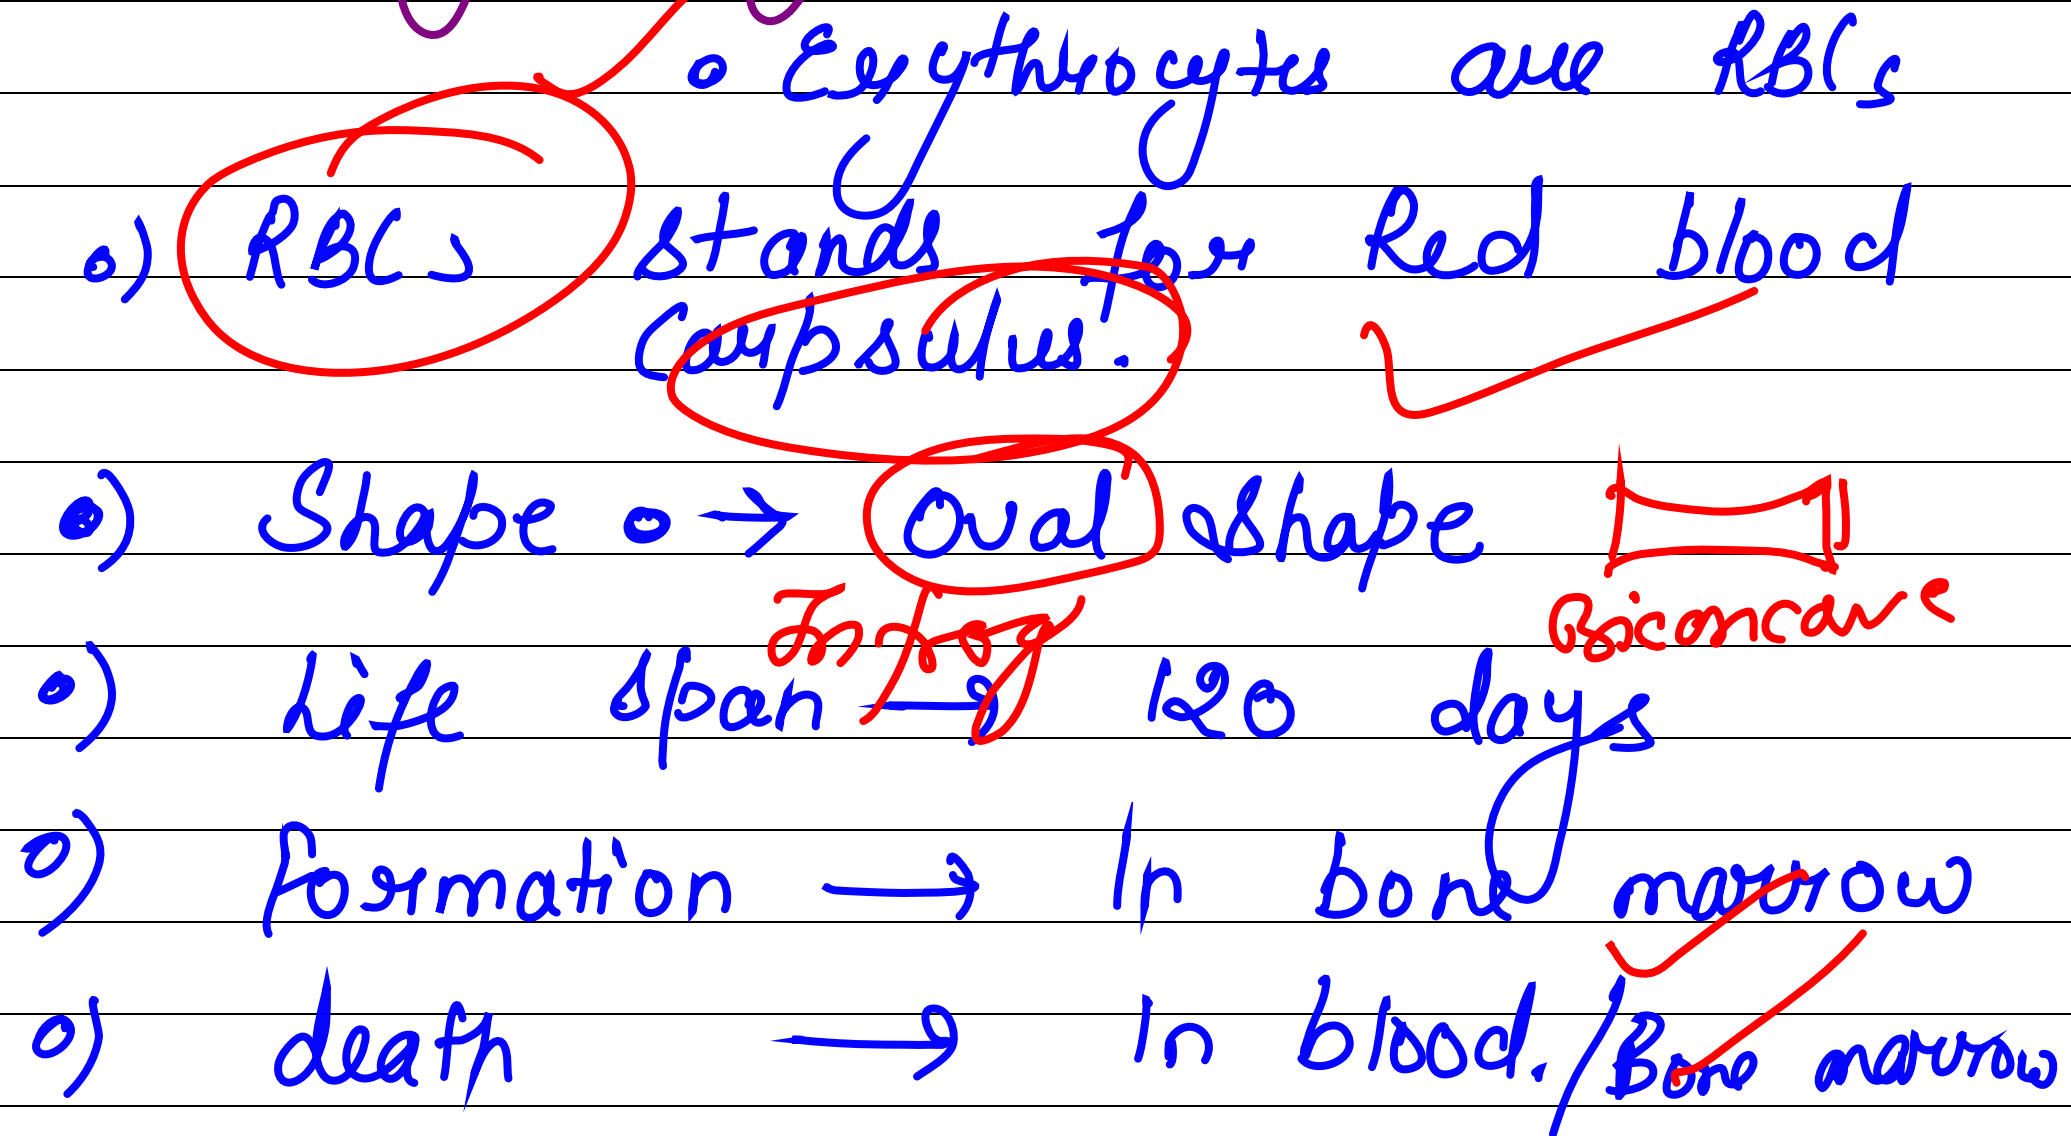 Erythrocytes are RBCs
RBCs stands for Red blood
Carpsulus.
Shape → Oval shape
Biconcave
Life span → 120 days
Formation → In bone marrow
death → In blood. / Bone marrow